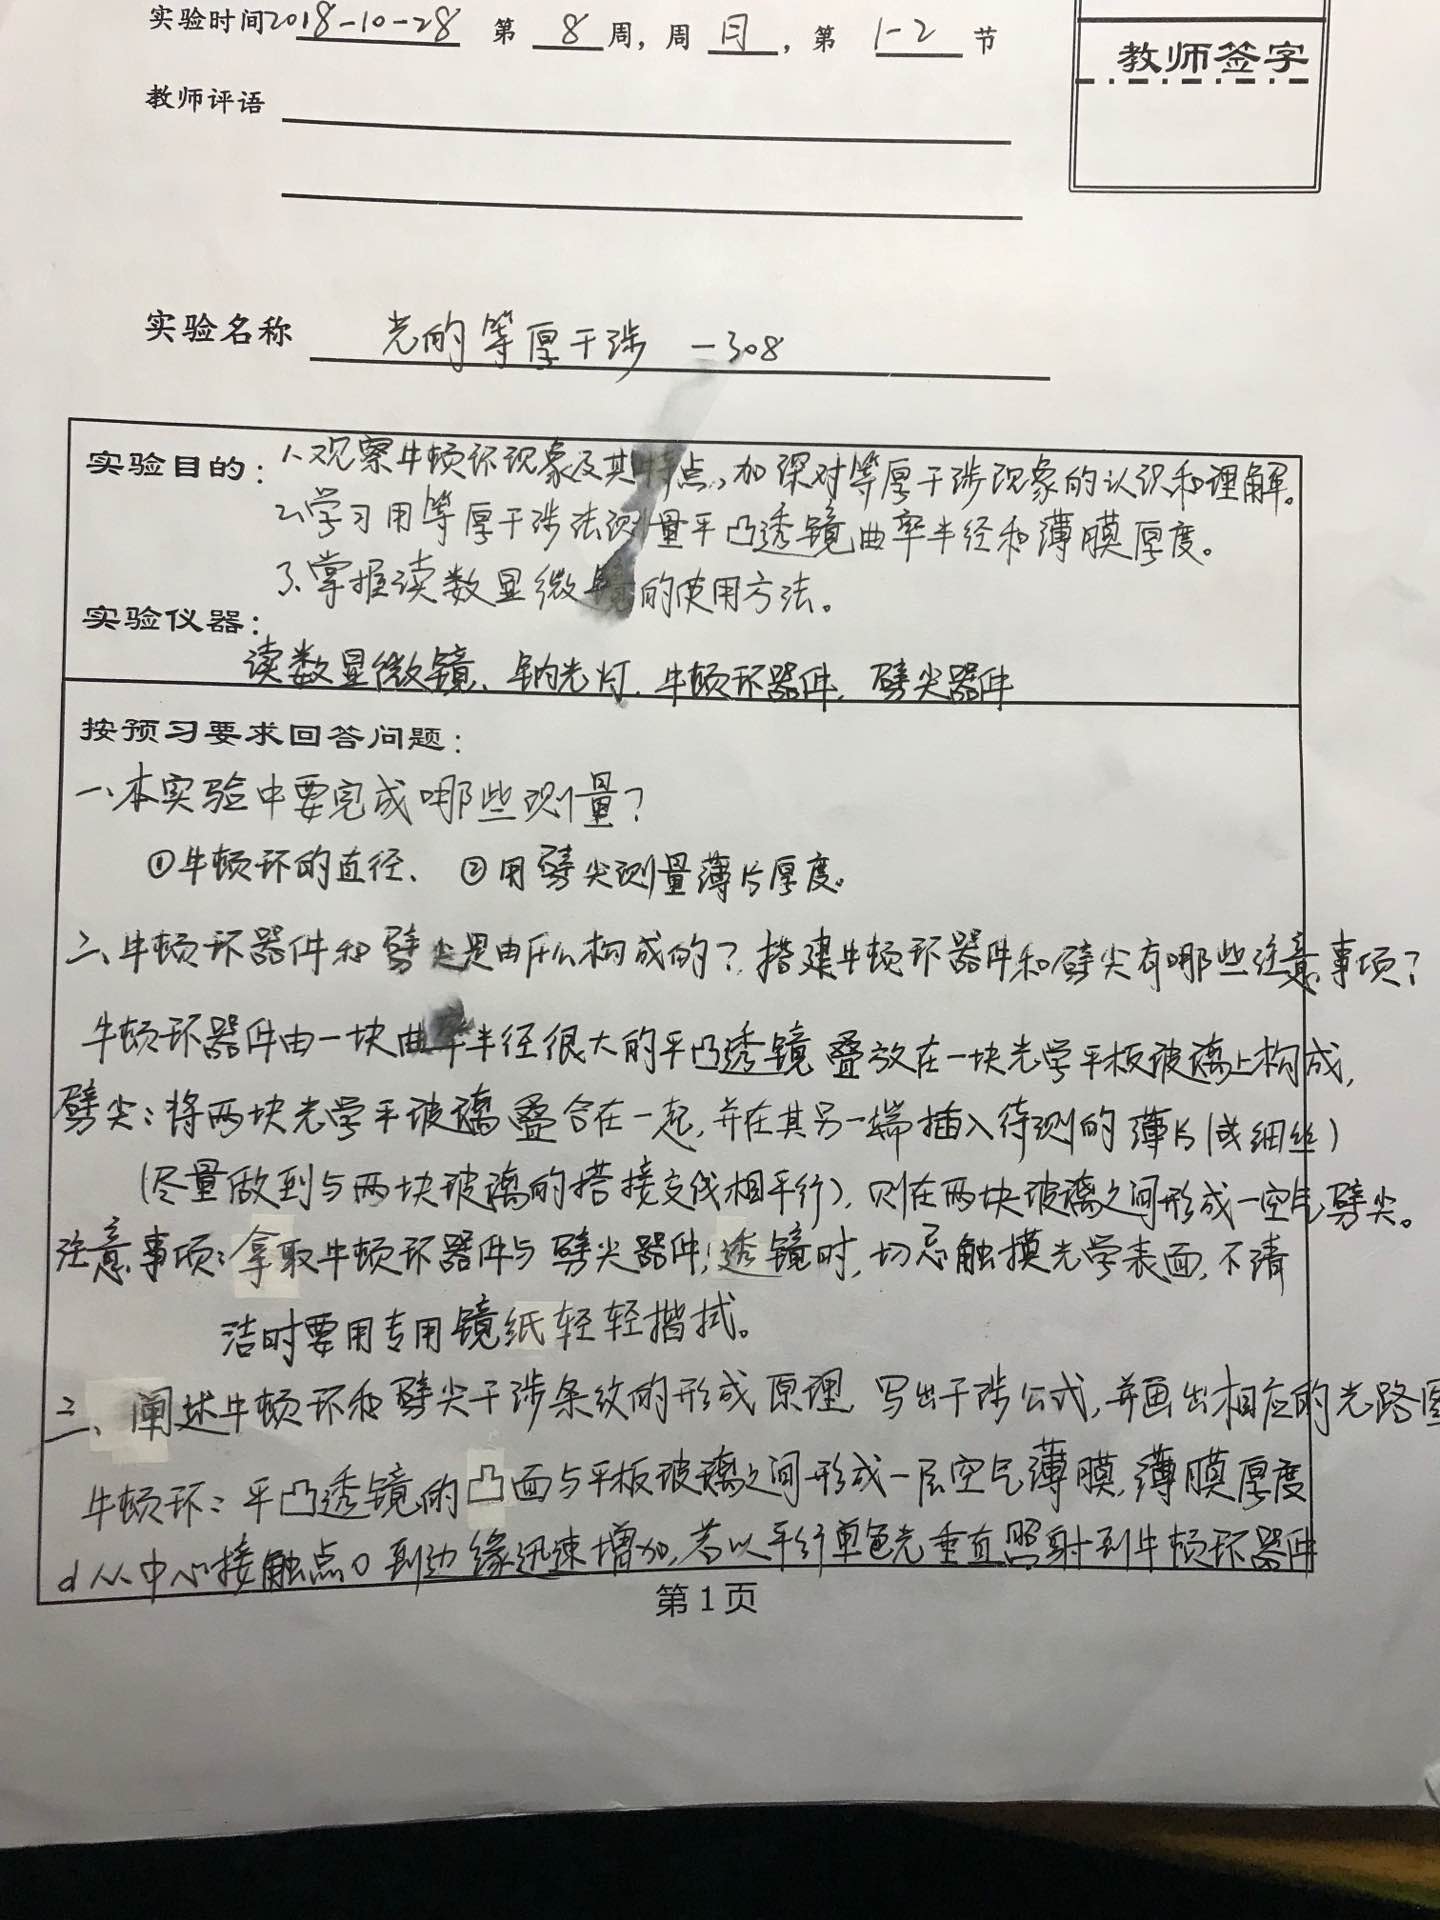 实验时间2018-10-28 第 8 周，周 日，第 1-2 节
教师签字
教师评语
实验名称 光的等厚干涉 -308
实验目的：1、观察牛顿环现象及其特点，加深对等厚干涉现象的认识和理解。
2、学习用等厚干涉法测量平凸透镜曲率半径和薄膜厚度。
3、掌握读数显微镜的使用方法。
实验仪器：
读数显微镜、钠光灯、牛顿环器件、劈尖器件
按预习要求回答问题：
一、本实验中要完成哪些测量？
①牛顿环的直径、 ②用劈尖测量薄片厚度。
二、牛顿环器件和劈尖是由什么构成的？搭建牛顿环器件和劈尖有哪些注意事项？
牛顿环器件由一块曲率半径很大的平凸透镜叠放在一块光学平板玻璃上构成，
劈尖：将两块光学平玻璃叠合在一起，并在其另一端插入待测的薄片（或细丝）
（尽量做到与两块玻璃的搭接交线相平行），则在两块玻璃之间形成一空气劈尖。
注意事项：拿取牛顿环器件与劈尖器件，透镜时，切忌触摸光学表面，不清
洁时要用专用镜纸轻轻揩拭。
三、阐述牛顿环和劈尖干涉条纹的形成原理，写出干涉公式，并画出相应的光路图
牛顿环：平凸透镜的凸面与平板玻璃之间形成一层空气薄膜，薄膜厚度
d从中心接触点0到边缘迅速增加，若以平行单色光垂直照射到牛顿环器件
第1页